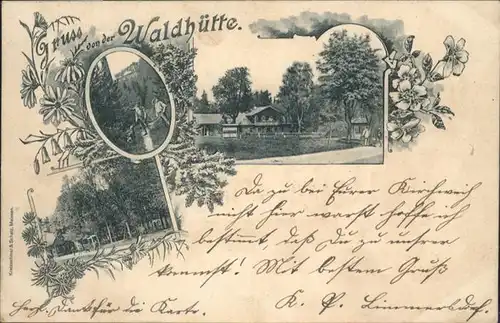 Gruss von der Waldhütte.
Da zu bei Eurer Kirchweih
nicht hier warst hoffe ich
bestimmt, daß Du zu unsrer
kommst! Mit bestem Gruß
K. P. Limmersdorf.
Herzl. Dank für die Karte.